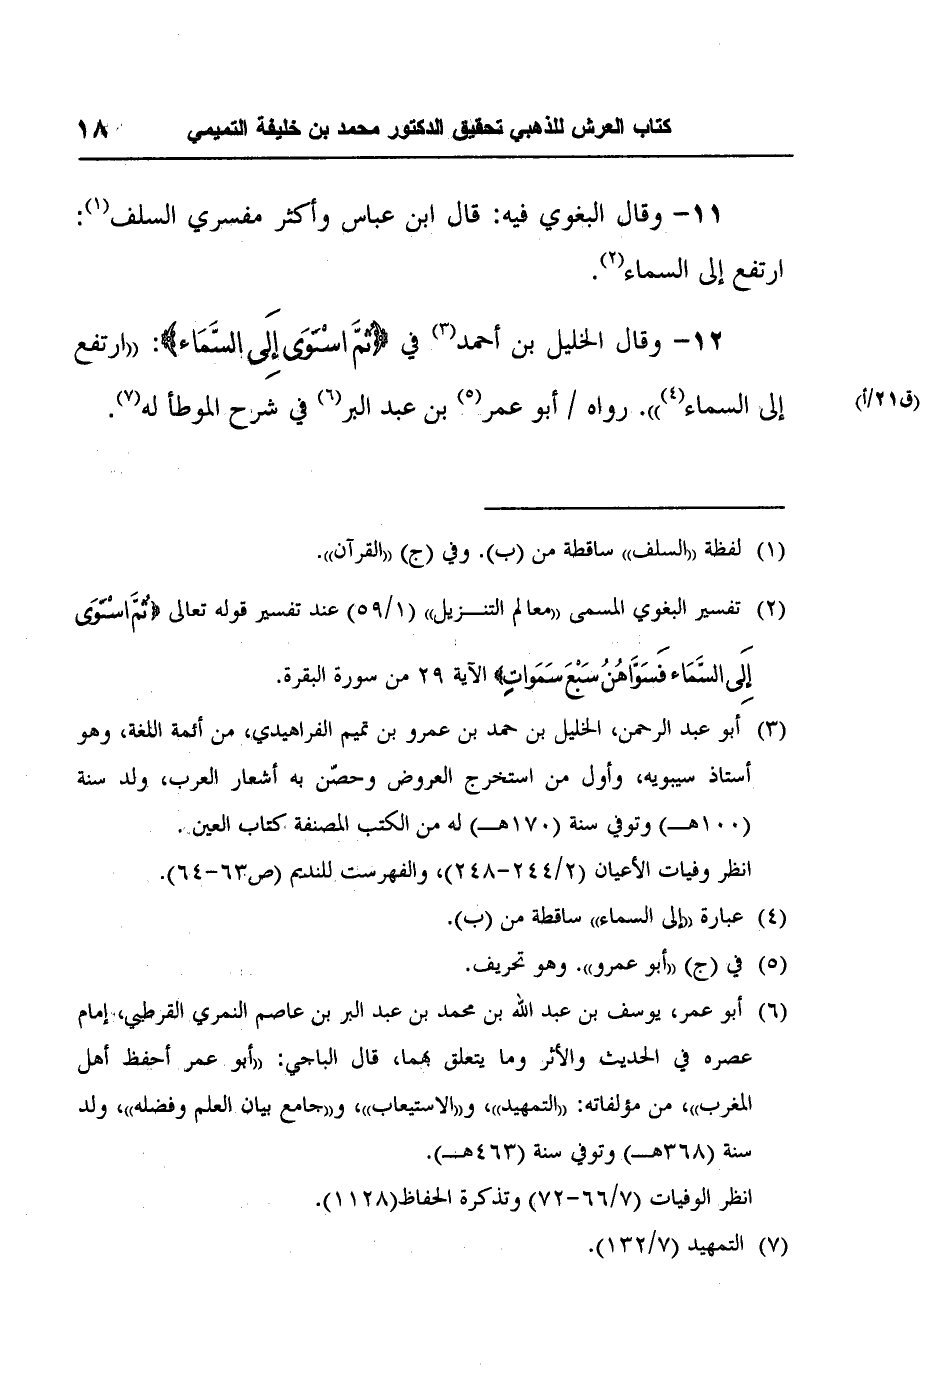 كتاب العرش للذهبي تحقيق الدكتور محمد بن خليفة التميمي ١٨
١١- وقال البغوي فيه: قال ابن عباس وأكثر مفسري السلف(١):
ارتفع إلى السماء(٢).
١٢- وقال الخليل بن أحمد(٣) في ﴿ثُمَّ اسْتَوَى إِلَى السَّمَاء﴾: «ارتفع
إلى السماء(٤)». رواه / أبو عمر(٥) بن عبد البر(٦) في شرح الموطأ له(٧).
(ق٢١/أ)
(١) لفظة «السلف» ساقطة من (ب). وفي (ج) «القرآن».
(٢) تفسير البغوي المسمى «معالم التنـزيل» (٥٩/١) عند تفسير قوله تعالى ﴿ثُمَّ اسْتَوَى
إِلَى السَّمَاء فَسَوَّاهُنَّ سَبْعَ سَمَوَاتٍ﴾ الآية ٢٩ من سورة البقرة.
(٣) أبو عبد الرحمن، الخليل بن حمد بن عمرو بن تميم الفراهيدي، من أئمة اللغة، وهو
أستاذ سيبويه، وأول من استخرج العروض وحصّن به أشعار العرب، ولد سنة
(١٠٠هـ) وتوفي سنة (١٧٠هـ) له من الكتب المصنفة كتاب العين.
انظر وفيات الأعيان (٢٤٤/٢-٢٤٨)، والفهرست للنديم (ص٦٣-٦٤).
(٤) عبارة «إلى السماء» ساقطة من (ب).
(٥) في (ج) «أبو عمرو». وهو تحريف.
(٦) أبو عمر، يوسف بن عبد الله بن محمد بن عبد البر بن عاصم النمري القرطبي، إمام
عصره في الحديث والأثر وما يتعلق بهما، قال الباجي: «أبو عمر أحفظ أهل
المغرب»، من مؤلفاته: «التمهيد»، و«الاستيعاب»، و«جامع بيان العلم وفضله»، ولد
سنة (٣٦٨هـ) وتوفي سنة (٤٦٣هـ).
انظر الوفيات (٦٦/٧-٧٢) وتذكرة الحفاظ(١١٢٨).
(٧) التمهيد (١٣٢/٧).